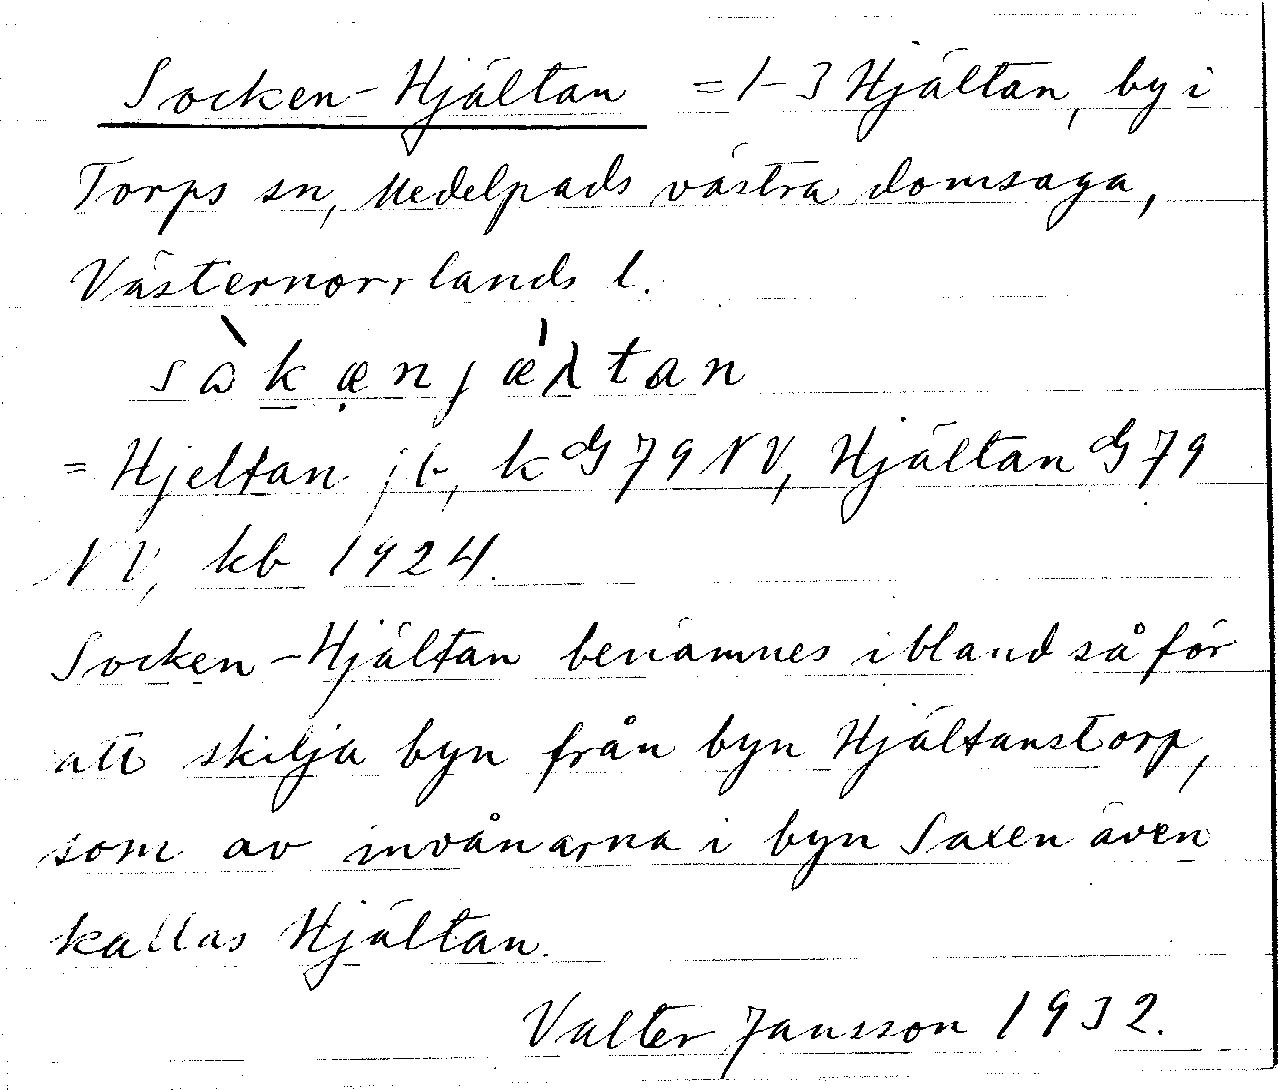 Socken-Hjältan = 1-3 Hjältan, by i
Torps sn, Medelpads västra domsaga,
Västernorrlands l.
= Hjeltan jb, k G 79 NV, Hjältan G 79
NV, kb 1924.
Socken-Hjältan benämnes ibland så för
att skilja byn från byn Hjältanstorp,
som av invånarna i byn Saxen även
kallas Hjältan.
Valter Jansson 1932.